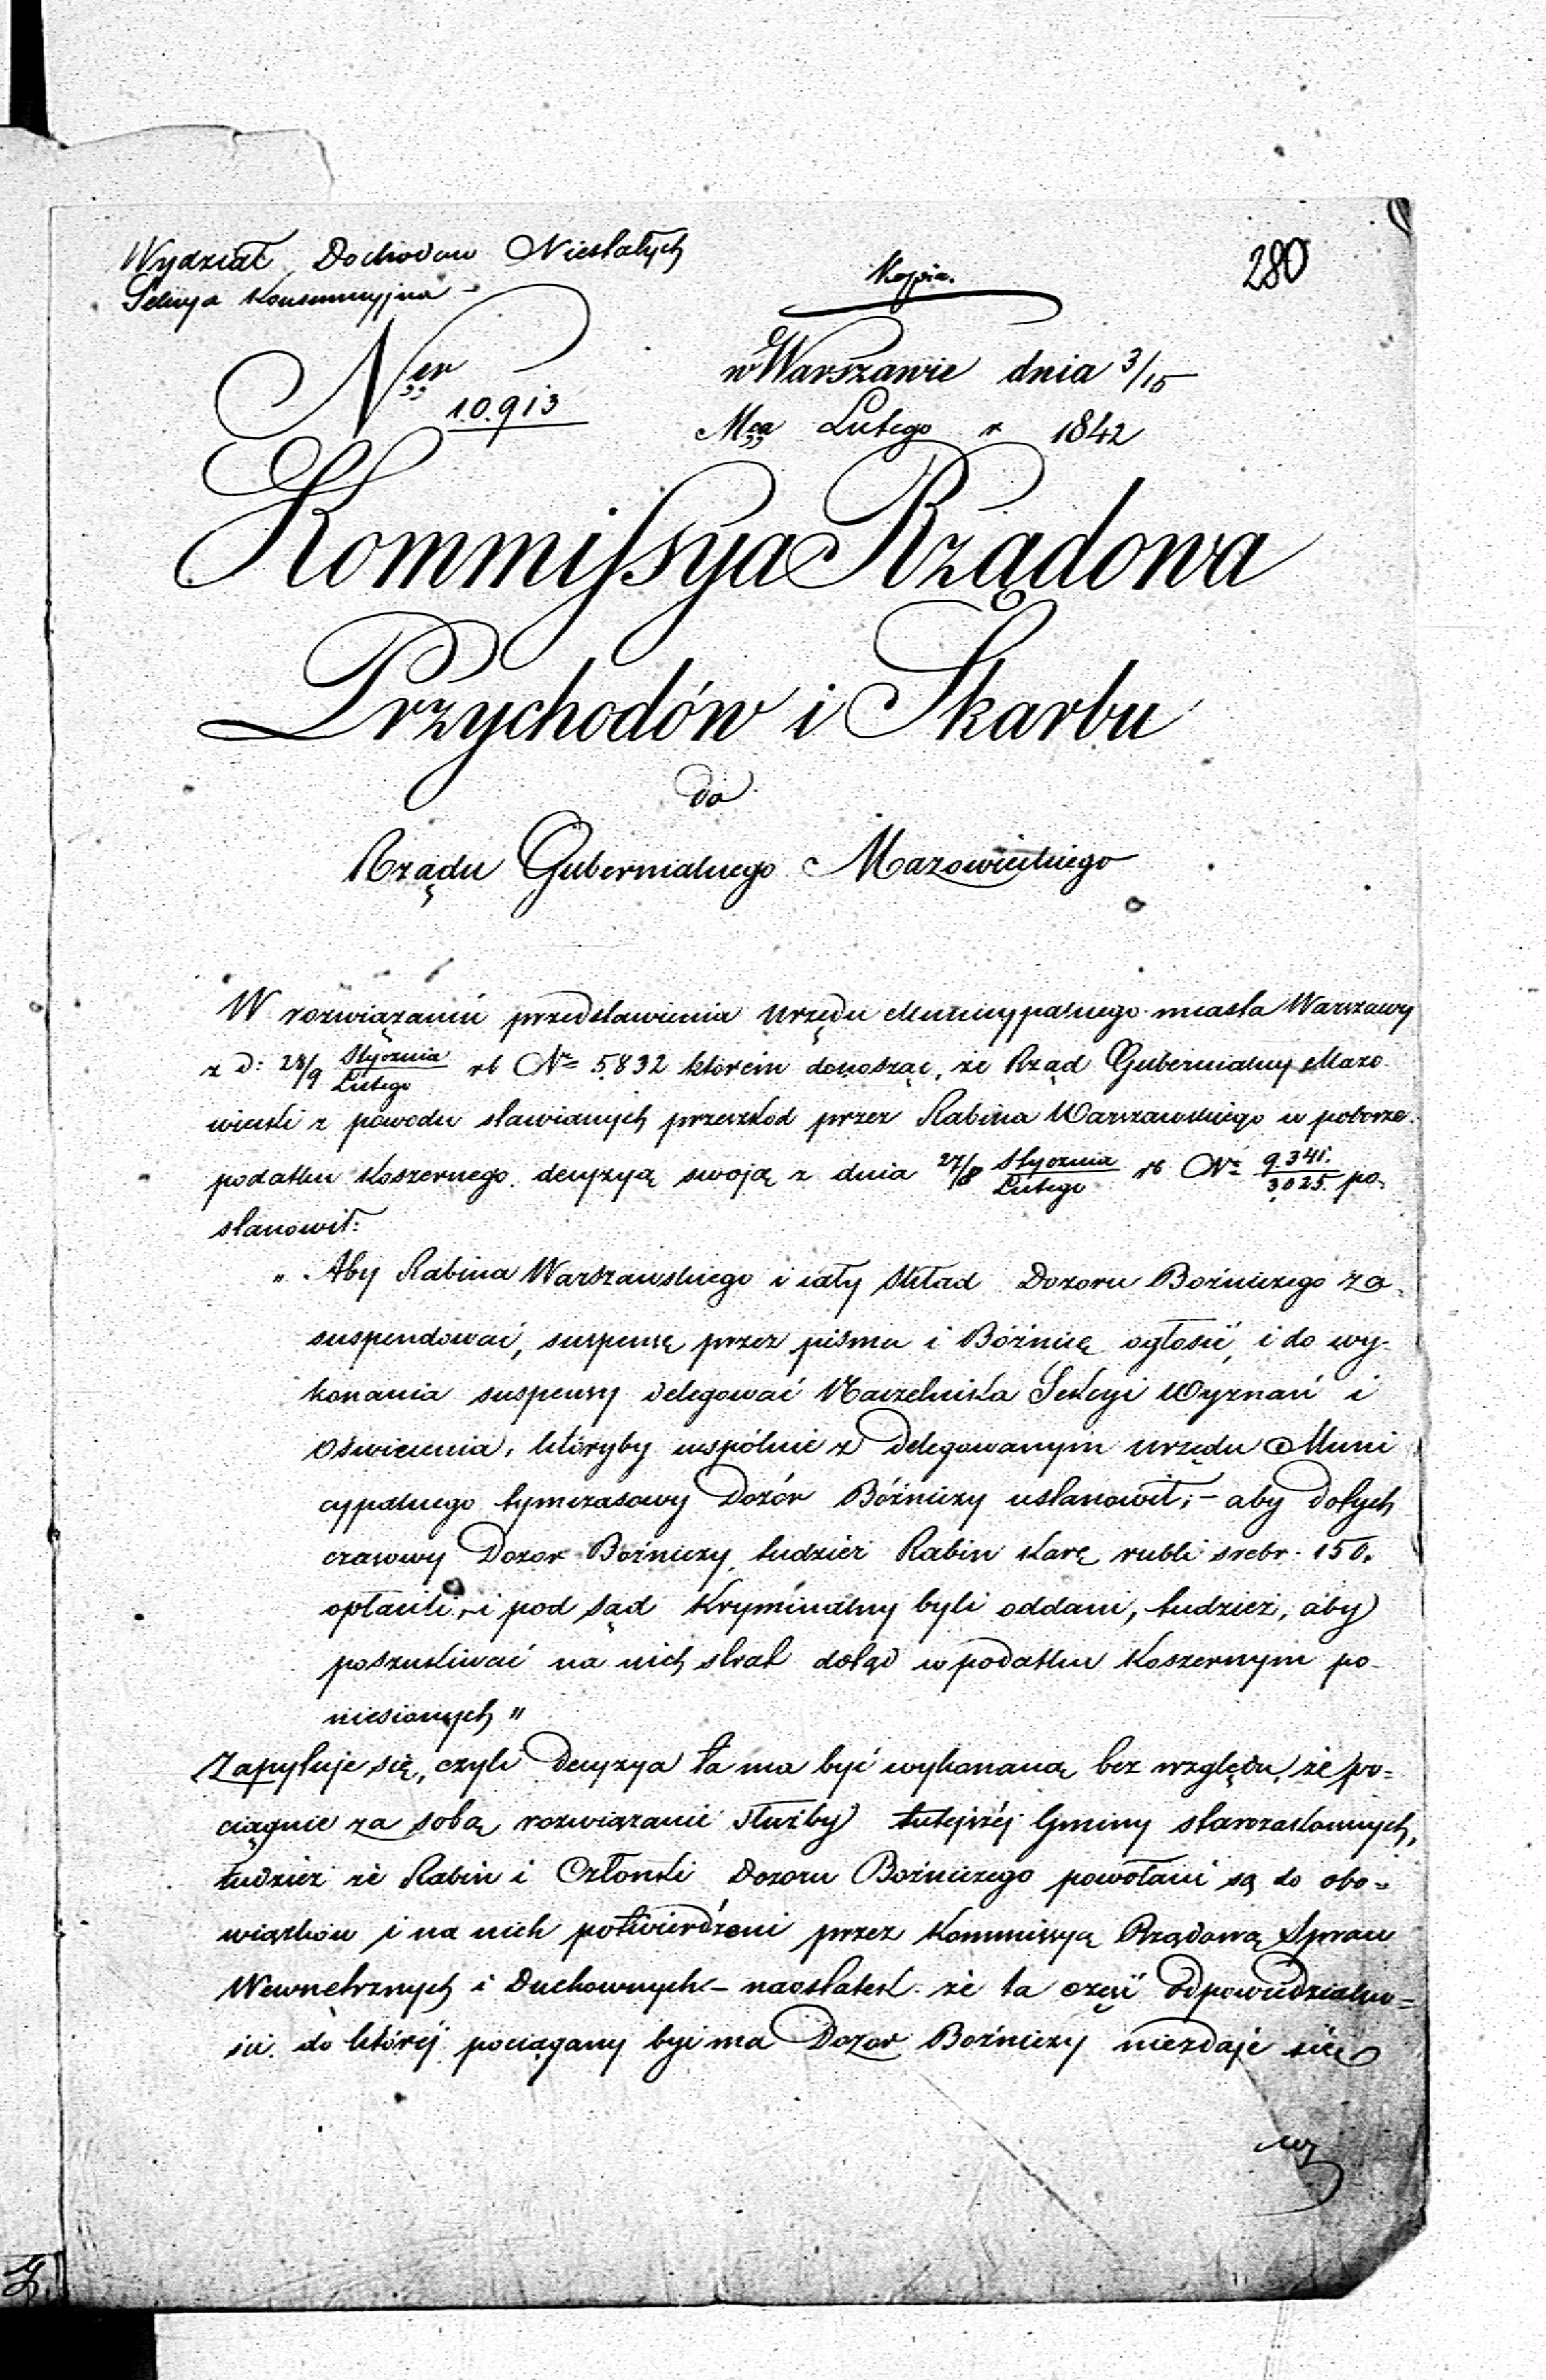 Wydział Dochodow Niestałych
Sekcya Konsumcyjna -
Kopia.
280
Ner 10.913
w Warszawie dnia 3/15
Mca Lutego r 1842
Kommissya Rządowa
Przychodów i Skarbu
do
Rządu Gubernialnego Mazowieckiego
W rozwiązaniu przedstawienia Urzędu Municypalnego miasta Warszawy
z d: 28/9 Stycznia/Lutego rb Nr 5832 którem donosząc, że Rząd Gubernialny Mazo-
wiecki z powodu stawianych przeszkod przez Rabina Warszawskiego w poborze
podatku Koszernego decyzyą swoją z dnia 27/8 Stycznia/Lutego rb Nr 9341./3025. po-
stanowił:
„ Aby Rabina Warszawskiego i cały Skład Dozoru Bożniczego za-
suspendować, suspensę przez pisma i Bóżnicę ogłosić, i do wy-
konania suspensy delegować Naczelnika Sekcyi Wyznań i
Oświecenia, któryby wspólnie z Delegowanym Urzędu Muni
cypalnego tymczasowy Dozór Bóżniczy ustanowił; - aby dotych
czasowy Dozor Bożniczy, tudzież Rabin karę rubli srebr. 150.
opłacili, i pod Sąd Kryminalny byli oddani, tudzież, aby
poszukiwać na nich strat dotąd w podatku Koszernym po-
niesionych "
Zapytuje się, czyli Decyzya ta ma być wykonaną bez względu, że po=
ciągnie za sobą rozwiązanie Służby tutejszéj Gminy starozakonnych,
tudzież że Rabin i Członki Dozoru Bożniczego powołani są do obo=
wiązków i na nich potwierdzeni przez Kommissyą Rządową Spraw
Wewnętrznych i Duchownych - naostatek że ta część Odpowiedzialno=
ści do któréj pociągany być ma Dozor Bożniczy niezdaje się